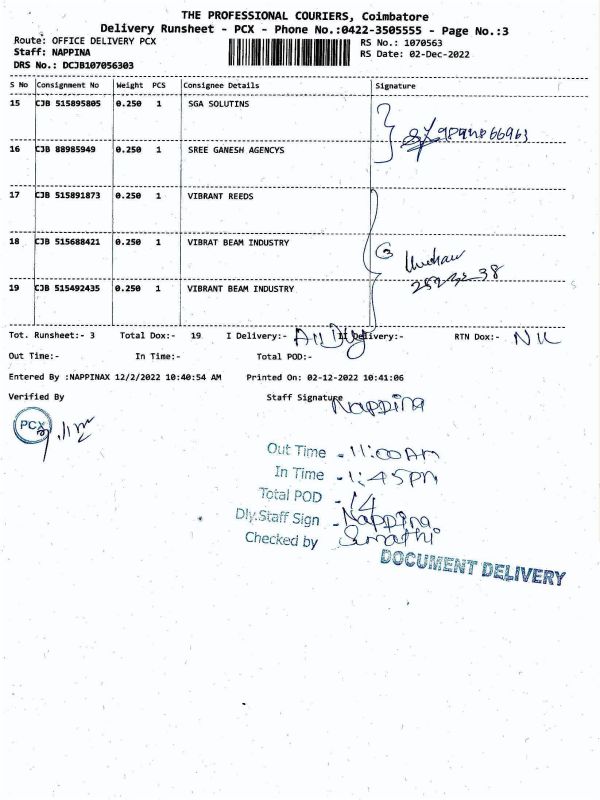 THE PROFESSIONAL COURIERS, Coimbatore
Delivery Runsheet - PCX - Phone No.:0422-3505555 - Page No.:3
Route: OFFICE DELIVERY PCX RS No.: 1070563
Staff: NAPPINA RS Date: 02-Dec-2022
DRS No.: DCJB107056303
S No Consignment No Weight PCS Consignee Details Signature
15 CJB 515895805 0.250 1 SGA SOLUTINS
16 CJB 88985949 0.250 1 SREE GANESH AGENCYS
17 CJB 515891873 0.250 1 VIBRANT REEDS
18 CJB 515688421 0.250 1 VIBRAT BEAM INDUSTRY
3
19 CJB 515492435 0.250 1 VIBRANT BEAM INDUSTRY
Tot. Runsheet:- 3 Total Dox:- 19 I Delivery:- All Dly II Delivery:- RTN Dox:- NIL
Out Time:- In Time:- Total POD:-
Entered By :NAPPINAX 12/2/2022 10:40:54 AM Printed On: 02-12-2022 10:41:06
Verified By Staff Signature Nappina
PCX
Out Time - 11:00 AM
In Time - 1:45 PM
Total POD - 14
Dly.Staff Sign - Nappina
Checked by Sumathi
DOCUMENT DELIVERY